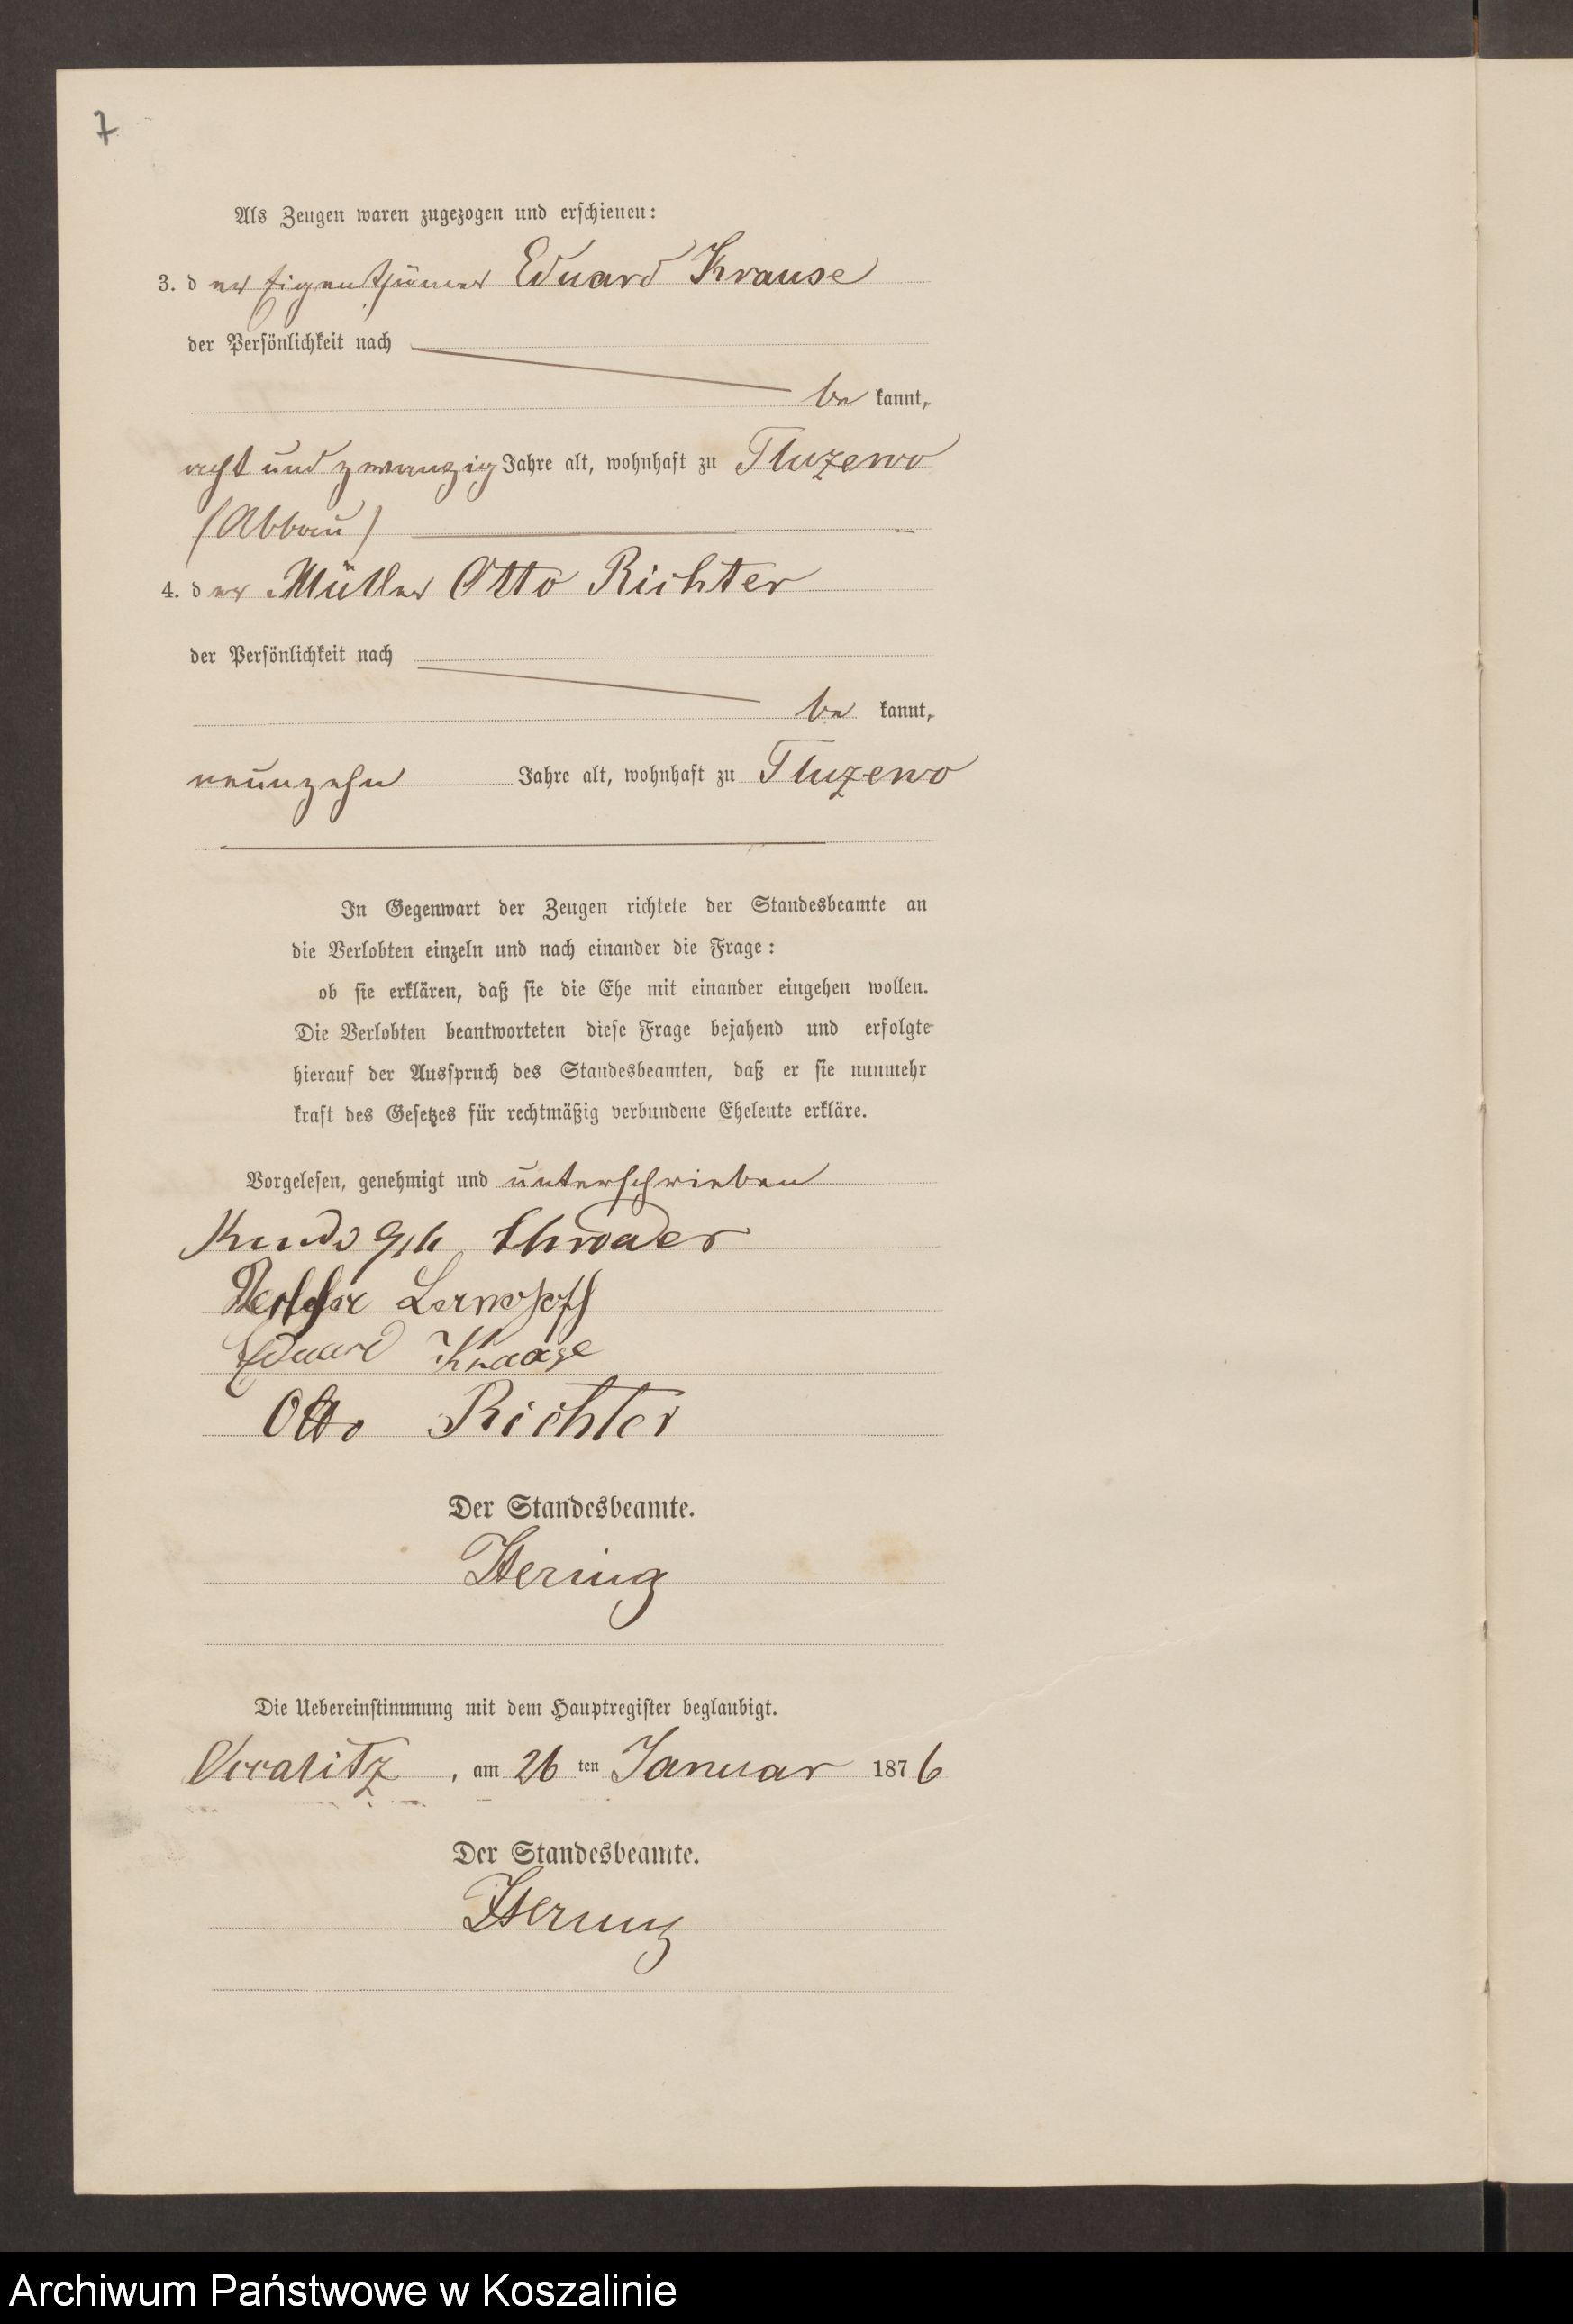 7
Als Zeugen waren zugezogen und erschienen:
3. der Eigenthümer Eduard Krause
der Persönlichkeit nach
be kannt,
acht und zwanzig Jahre alt, wohnhaft zu Tluzewo
(Abbau)
4. der Müller Otto Richter
der Persönlichkeit nach
be kannt,
neunzehn Jahre alt, wohnhaft zu Tluzewo
In Gegenwart der Zeugen richtete der Standesbeamte an
die Verlobten einzeln und nach einander die Frage:
ob sie erklären, daß sie die Ehe mit einander eingehen wollen.
Die Verlobten beantworteten diese Frage bejahend und erfolgte
hierauf der Ausspruch des Standesbeamten, daß er sie nunmehr
kraft des Gesetzes für rechtmäßig verbundene Eheleute erkläre.
Vorgelesen, genehmigt und unterschrieben
Eduard
Otto Richter
Der Standesbeamte.
Hering
Die Uebereinstimmung mit dem Hauptregister beglaubigt.
, am 26 ten Januar 1876
Der Standesbeamte.
Hering
Archiwum Państwowe w Koszalinie